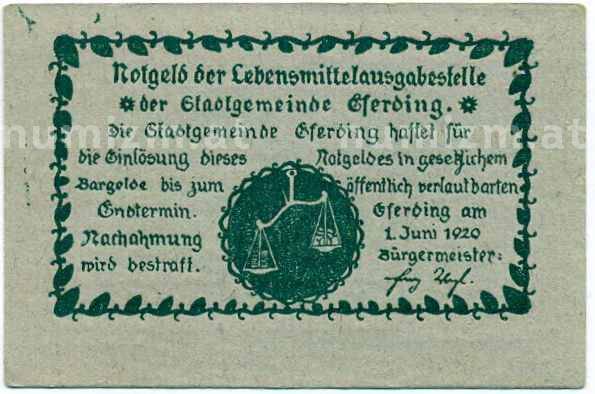 Notgeld der Lebensmittelausgabestelle
der Stadtgemeinde Eferding.
Die Stadtgemeinde Eferding haftet für
die Einlösung dieses Notgeldes in gesetzlichem
Bargelde bis zum öffentlich verlautbarten
Endtermin. Eferding am
Nachahmung 1. Juni 1920
wird bestraft. Bürgermeister:
numizm.at numizm.at